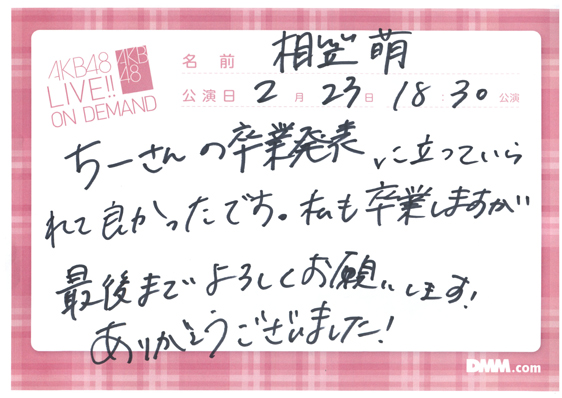 AKB48
LIVE!!
ON DEMAND
AKB
48
名前 相笠萌
公演日 2月23日 18:30公演
ちーさんの卒業発表に立っていら
れて良かったです。私も卒業しますが
最後までよろしくお願いします!
ありがとうございました!
DMM.com